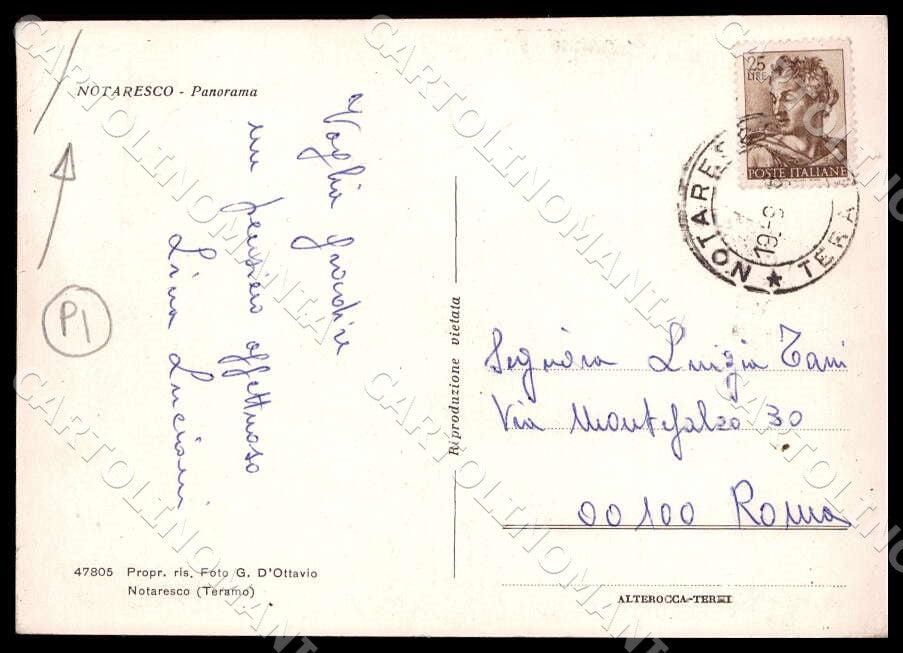 NOTARESCO - Panorama
Voglia gradire
un pensiero affettuoso
Lina Luciani
P1
47805 Propr. ris. Foto G. D'Ottavio
Notaresco (Teramo)
Riproduzione vietata
25
LIRE
POSTE ITALIANE
NOTARES
19-9
TERA
Signora Luigia Tani
Via Montefalco 30
00100 Roma
ALTEROCCA-TERNI
CARTOLINOMANIA